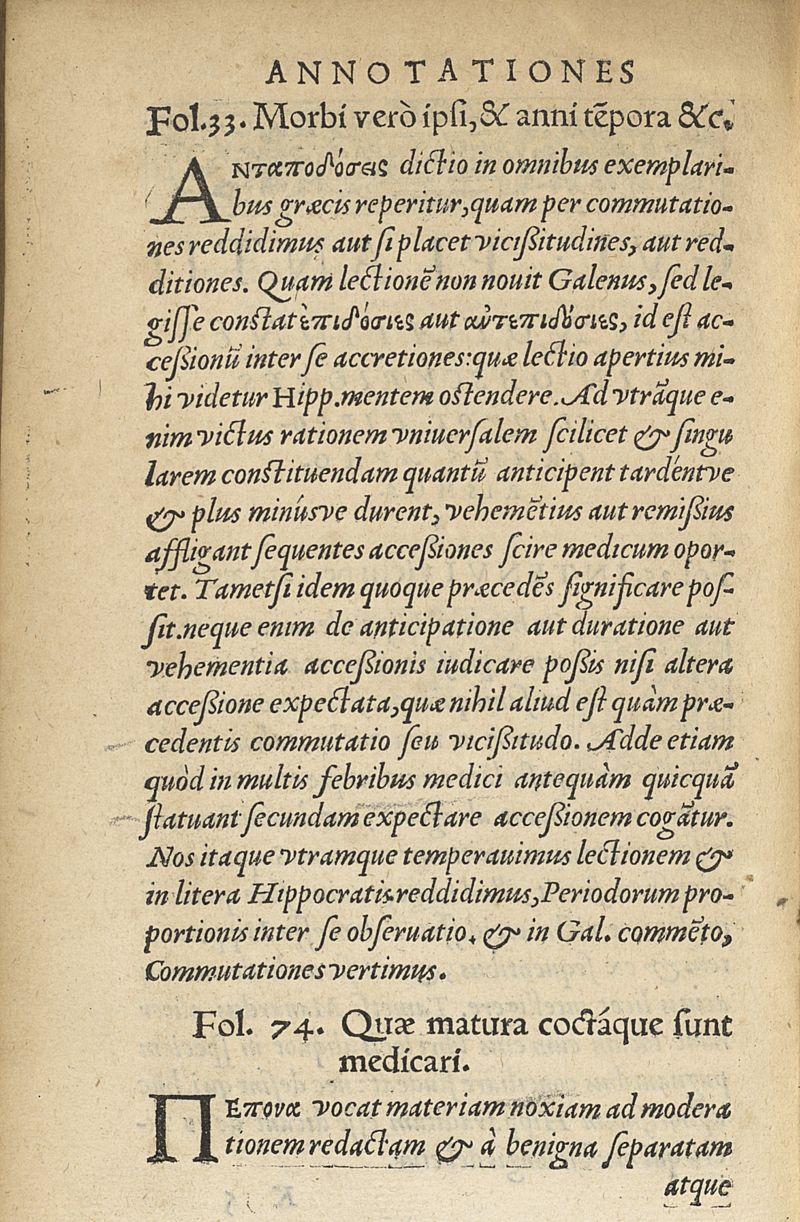 ANNOTATIONES
Fol.33. Morbí verò ípſi, & anní tẽpora &c.
ANταποδόσεις dictio in omnibus exemplari-
bus græcis reperitur, quam per commutatio-
nes reddidimus aut ſi placet viciſsitudines, aut red-
ditiones. Quam lectionẽ non nouit Galenus, ſed le-
giſſe conſtat ἐπιδόσιες aut ἀντεπιδόσιες, id eſt ac-
ceſsionũ inter ſe accretiones: quæ lectio apertius mi-
hi videtur Hipp. mentem oſtendere. Ad vtrãque e-
nim victus rationem vniuerſalem ſcilicet & ſingu
larem conſtituendam quantũ anticipent tardéntve
& plus minúsve durent, vehemẽtius aut remiſsius
affligant ſequentes acceſsiones ſcire medicum opor-
tet. Tametſi idem quoque præcedẽs ſignificare poſ-
ſit. neque enim de anticipatione aut duratione aut
vehementia acceſsionis iudicare poſsis niſi altera
acceſsione expectata, quæ nihil aliud eſt quàm præ-
cedentis commutatio ſeu viciſsitudo. Adde etiam
quòd in multis febribus medici antequàm quicquã
ſtatuant ſecundam expectare acceſsionem cogãtur.
Nos itaque vtramque temperauimus lectionem &
in litera Hippocratis reddidimus, Periodorum pro-
portionis inter ſe obſeruatio. & in Gal. commẽto,
Commutationes vertimus.
Fol. 74. Quæ matura coctáque ſunt
medícarí.
ΠEπονα vocat materiam noxiam ad modera
tionem redactam & à benigna ſeparatam
atque